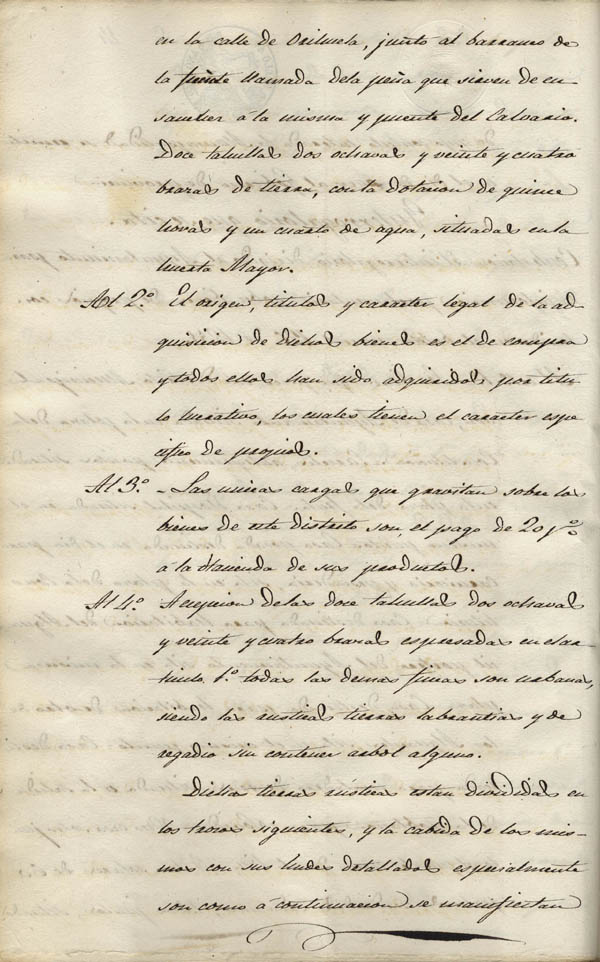 en la calle de Orihuela, junto al barranco de
la fuente llamada dela peña que sirven de en
sancher á la misma y puente del Calvario.
Doce tahullas dos ochavas y veinte y cuatro
brazas de tierra, con la dotacion de quince
horas y un cuarto de agua, situadas en la
huerta Mayor.
Al 2.º El origen, titulos y caracter legal de la ad
quisicion de dichos bienes es el de compra
y todos ellos han sido adquiridos por titu
lo lucrativo, los cuales tienen el carácter espe
cifico de propios.
Al 3.º - Las unicas cargas que gravitan sobre los
bienes de este distrito son, el pago de 20 p%
á la Hacienda de sus productos.
Al 4.º Acepcion de las doce tahullas dos ochavas
y veinte y cuatro brazas espresadas en el ar
ticulo 1.º todas las demas fincas son urbanas,
siendo las rusticas tierras labrantias y de
regadio sin contener arbol alguno.
Dichas tierras rústicas estan divididas en
los trozos siguientes, y la cabida de los mis
mos con sus lindes detallados especialmente
son como á continuacion se manifiestan